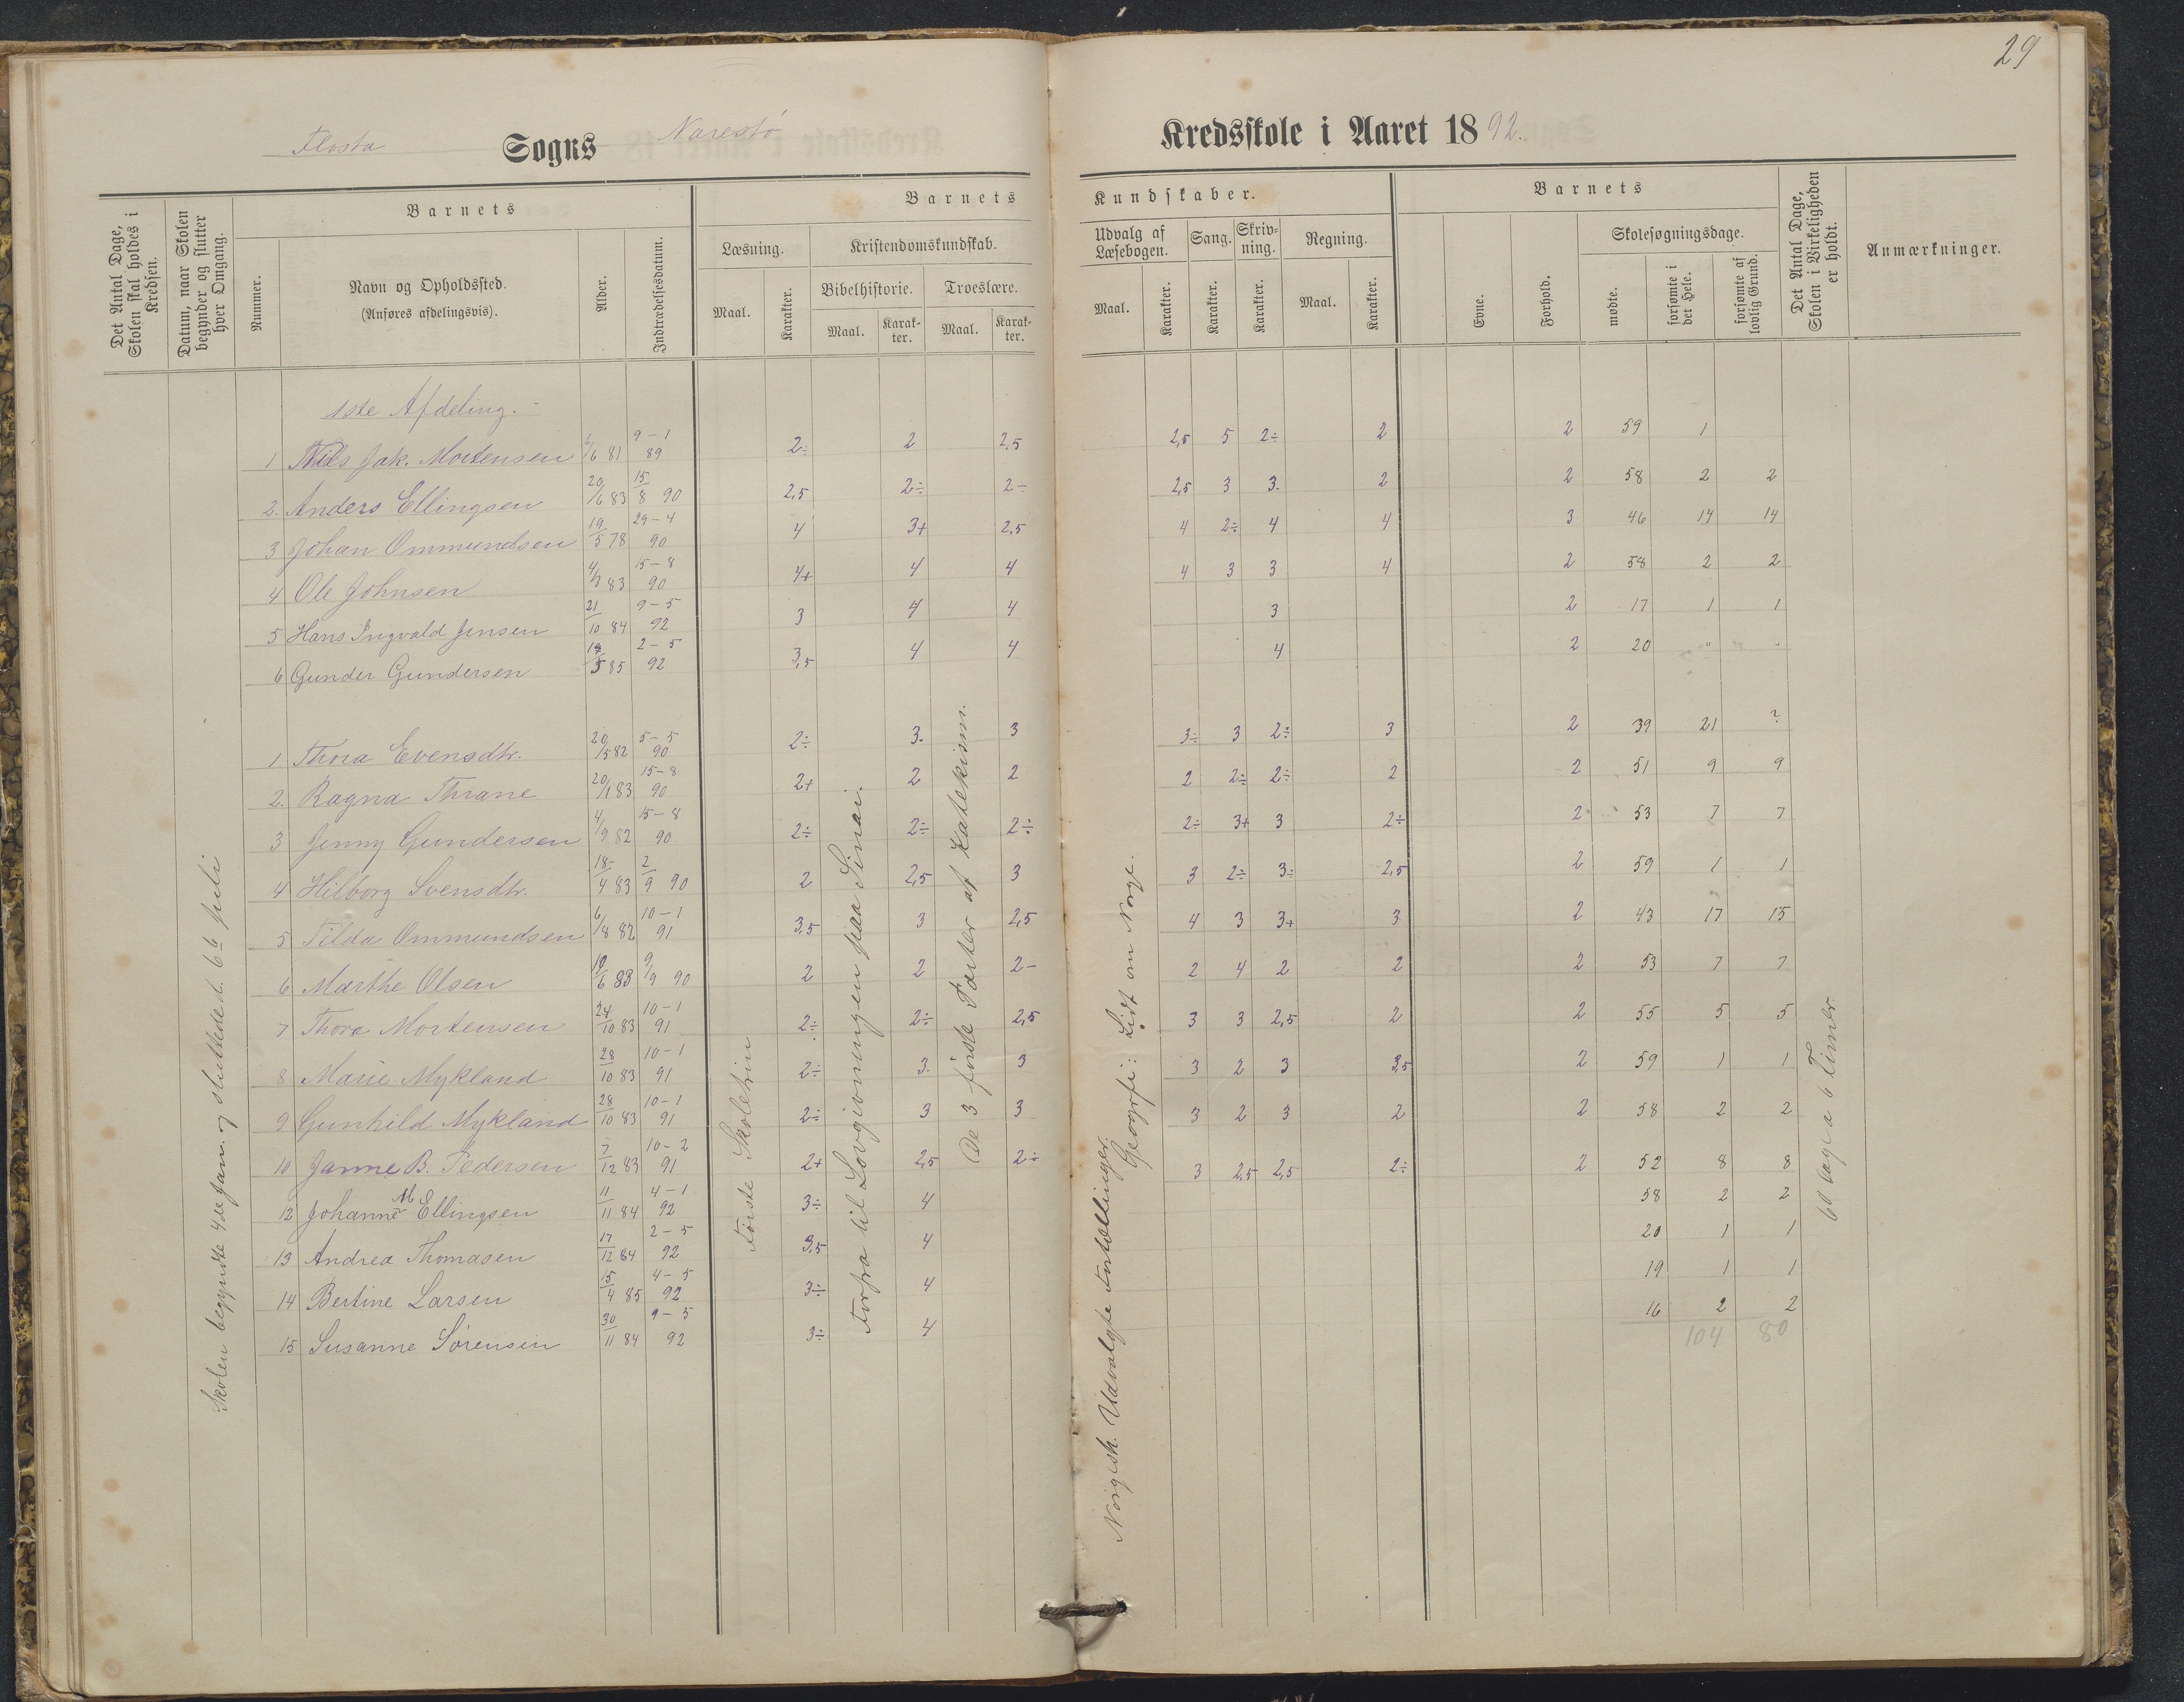 29
Flosta Sogns Narestø Kredsskole i Aaret 1892.
Det Antal Dage, Skolen skal holdes i Kredsen.
Datum, naar Skolen begynder og slutter hver Omgang.
Barnets
Nummer.
Navn og Opholdssted.
(Anføres afdelingsvis).
Alder.
Indtrædelsesdatum.
Barnets Kundskaber.
Læsning.
Maal.
Karakter.
Kristendomskundskab.
Bibelhistorie.
Maal.
Karakter.
Troeslære.
Maal.
Karakter.
Udvalg af Læsebogen.
Maal.
Karakter.
Sang.
Karakter.
Skrivning.
Karakter.
Regning.
Maal.
Karakter.
Barnets
Evne.
Forhold.
Skolesøgningsdage.
mødte.
forsømte i det Hele.
forsømte af lovlig Grund.
Det Antal Dage, Skolen i Virkeligheden er holdt.
Anmærkninger.
1ste Afdeling.
1 Nils Jak. Mortensen 6/6 81 9-1 89 2÷ 2 2,5 2,5 5 2÷ 2 2 59 1
2. Anders Ellingsen 20/6 83 15/8 90 2,5 2÷ 2÷ 2,5 3 3. 2 2 58 2 2
3 Johan Ommundsen 19/5 78 29-4 90 4 3+ 2,5 4 2÷ 4 4 3 46 14 14
4 Ole Johnsen 4/3 83 15-8 90 4+ 4 4 4 3 3 4 2 58 2 2
5 Hans Ingvald Jensen 21/10 84 9-5 92 3 4 4 3 2 17 1 1
6 Gunder Gundersen 19/5 85 2-5 92 3,5 4 4 4 2 20 " "
1 Thora Evensdtr. 20/5 82 5-5 90 2÷ 3. 3 3÷ 3 2÷ 3 2 39 21 ?
2. Ragna Thrane 20/1 83 15-8 90 2+ 2 2 2 2÷ 2÷ 2 2 51 9 9
3 Jenny Gundersen 4/9 82 15-8 90 2÷ 2÷ 2÷ 2÷ 3+ 3 2÷ 2 53 7 7
4 Hilborg Svensdtr. 18/4 83 2/9 90 2 2,5 3 3 2÷ 3÷ 2,5 2 59 1 1
5 Tilda Ommundsen 6/8 82 10-1 91 3,5 3 2,5 4 3 3+ 3 2 43 17 15
6 Marthe Olsen 10/6 83 9/9 90 2 2 2- 2 4 2 2 2 53 7 7
7 Thora Mortensen 24/10 83 10-1 91 2÷ 2÷ 2,5 3 3 2,5 2 2 55 5 5
8 Marie Mykland 28/10 83 10-1 91 2÷ 3. 3 3 2 3 3,5 2 59 1 1
9 Gunhild Mykland 28/10 83 10-1 91 2÷ 3 3 3 2 3 2 2 58 2 2
10 Janne B. Pedersen 7/12 83 10-2 91 2+ 2,5 2÷ 3 2,5 2,5 2÷ 2 52 8 8
12 Johanne M. Ellingsen 11/11 84 4-1 92 3÷ 4 58 2 2
13 Andrea Thomasen 17/12 84 2-5 92 3,5 4 20 1 1
14 Bertine Larsen 15/4 85 4-5 92 3÷ 4 19 1 1
15 Susanne Sørensen 30/11 84 9-5 92 3÷ 4 16 2 2
104 80
Skolen begyndte 4de Jan. og sluttede d. 6te Juli
Første Skoletrin
Forfra til Lovgivningen paa Sinai.
De 3 første Parter af Katekism.
Norgesh. Udvalgte Fortællinger.
Geografi: Lidt om Norge.
60 Dage a 6 Timer.